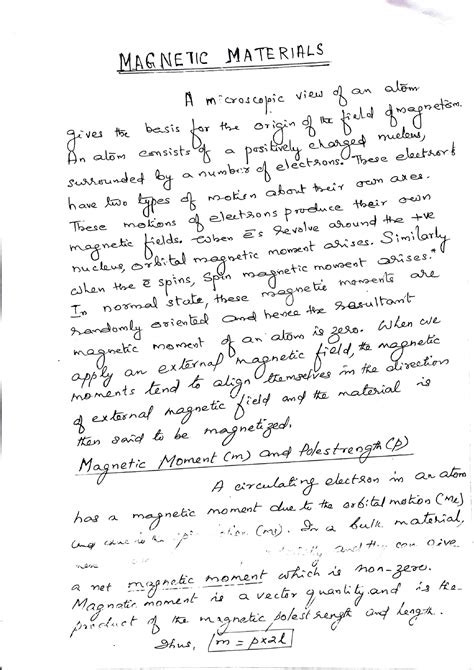 MAGNETIC MATERIALS
A microscopic view of an atom
gives the basis for the origin of the field of magnetism.
An atom consists of a positively charged nucleus,
surrounded by a number of electrons. These electrons
have two types of motion about their own axes.
These motions of electrons produce their own
magnetic fields. When ēs revolve around the +ve
nucleus, orbital magnetic moment arises. Similarly
when the ē spins, spin magnetic moment arises.
In normal state, these magnetic moments are
randomly oriented and hence the resultant
magnetic moment of an atom is zero. When we
apply an external magnetic field, the magnetic
moments tend to align themselves in the direction
of external magnetic field and the material is
then said to be magnetized.
Magnetic Moment (m) and Polestrength (p)
A circulating electron in an atom
has a magnetic moment due to the orbital motion (Me)
and In a bulk material,
and they can give
a net magnetic moment which is non-zero.
Magnatic moment is a vector quantity and is the
product of the magnetic polestrength and length.
Thus, m = p×2l